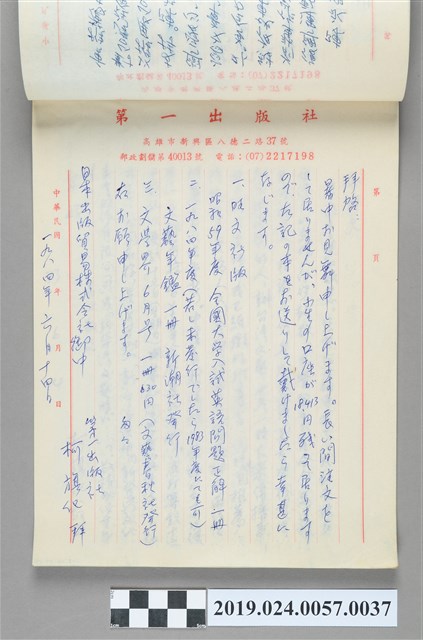 第一出版社
高雄市新興區八德二路37號
郵政劃儲第40013號　電話：(07)2217198
第　頁
拝啓：
暑中お見舞申し上げます。長い間注文を
して居りませんが、小生の口座が18,413円残って居ります
ので、左記の本をお送りして戴けましたら幸甚に
なじます。
一、旺文社版
昭和59年度 全國大学入試英語問題正解 一冊
二、一九八四年度（若し未発行でしたら1983年度にても可）
文藝年鑑 一冊 新潮社発行
三、文學界 6月号 一冊 630円（文藝春秋社発行）
右お願申し上げます。
日本出版貿易株式会社御中
第一出版社
柯旗化 拜
中華民國　年　月　日
一九八四年六月十四日
2019.024.0057.0037